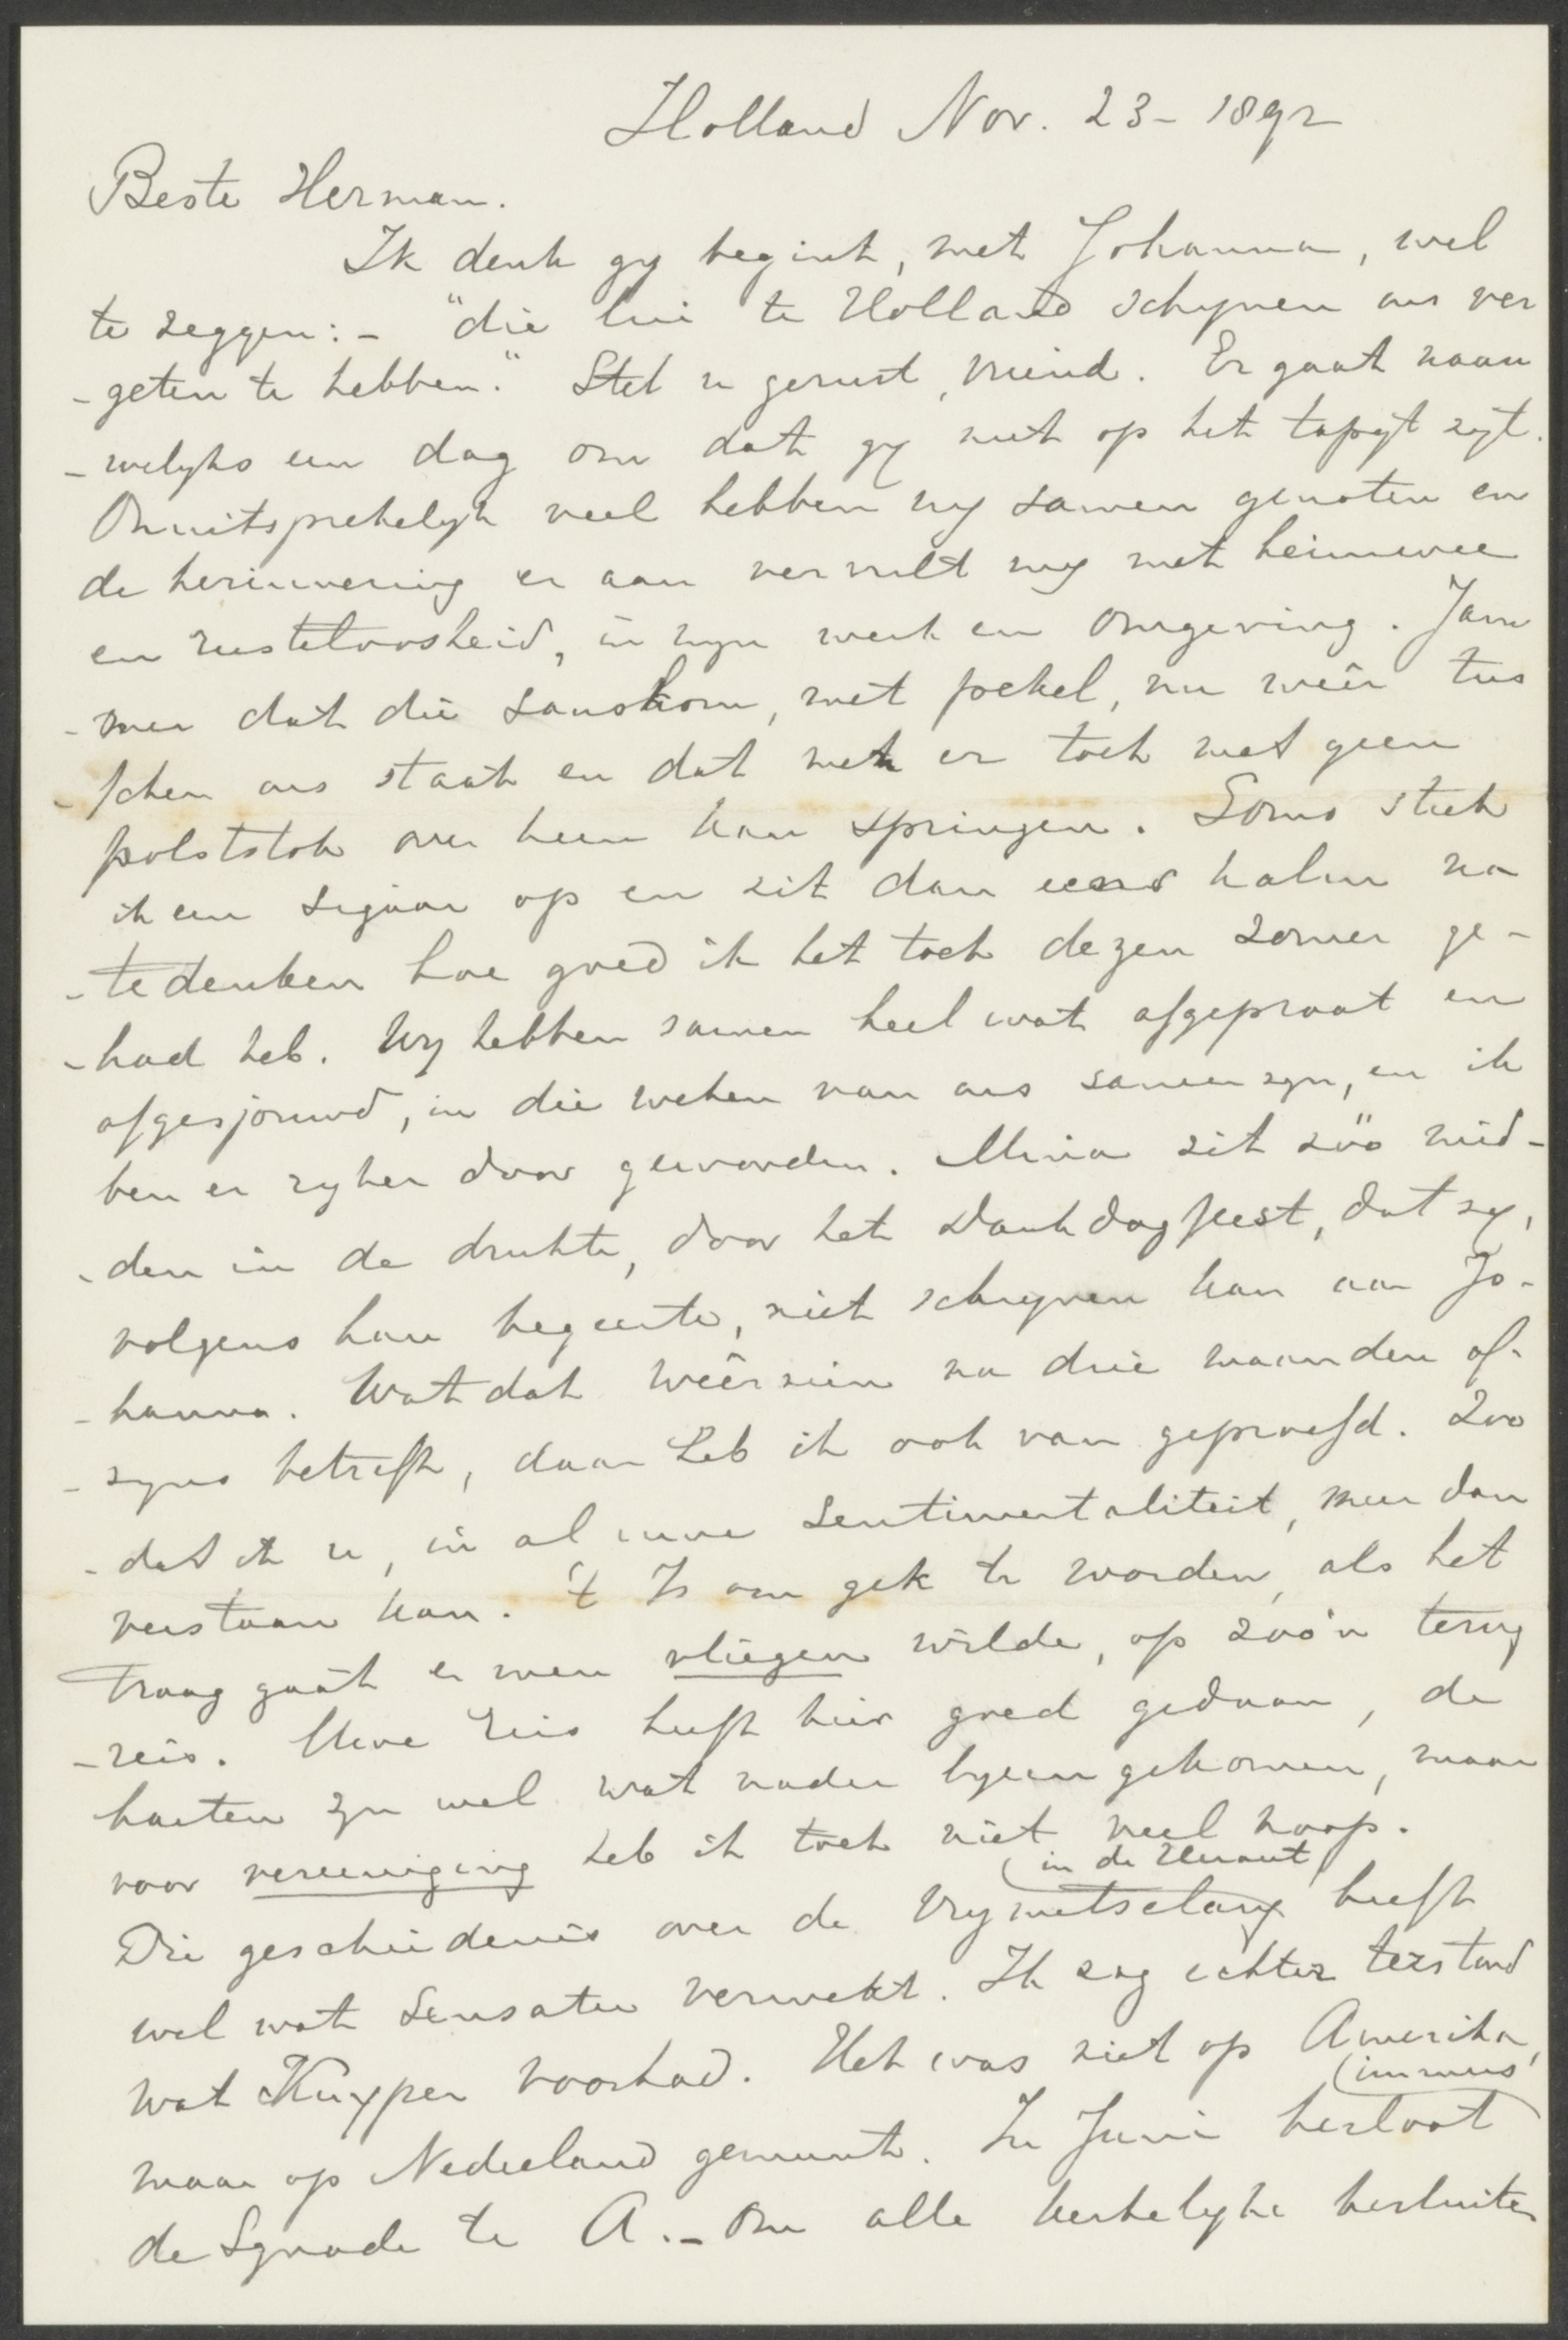 Holland Nov. 23 - 1892
Beste Herman.
Ik denk gy begint, met Johanna, wel
te zeggen: - "die lui te Holland schynen ons ver
- geten te hebben." Stel u gerust, vriend. Er gaat naau
- welyks een dag om dat gy niet op het tapyt zyt.
Onuitsprekelyk veel hebben wy samen genoten en
de herinnering er aan vervult my met heimwee
en rusteloosheid, in myn werk en omgeving. Jam
- mer dat die sauskom, met pekel, nu weêr tus
- schen ons staat en dat men er toch met geen
polsstok over heen kan springen. Soms steek
ik een sigaar op en zit dan eens kalm na
- te denken hoe goed ik het toch dezen zomer ge-
- had heb. Wy hebben samen heel wat afgepraat en
afgesjouwd, in die weken van ons samenzyn, en ik
ben er ryker door geworden. Mina zit zóó mid-
- den in de drukte, door het Dankdagfeest, dat zy,
volgens haar begeerte, niet schryven kan aan Jo-
- hanna. Wat dat weêrzien na drie maanden af-
- zyns betreft, daar heb ik ook van geproefd. Zoo
- dat ik u, in al uwe sentimentaliteit, meer dan
verstaan kan. 't Is om gek te worden, als het
traag gaat en men vliegen wilde, op zoo'n terug
- reis. Uwe reis heeft hier goed gedaan, de
harten zyn wel wat nader byeen gekomen, maar
voor vereeniging heb ik toch niet veel hoop.
(in de Heraut)
Die geschiedenis over de Vrymetselary heeft
wel wat sensatie verwekt. Ik zag echter terstond
wat Kuyper voorhad. Het was niet op Amerika,
(immers
maar op Nederland gemunt. In Juni besloot
de Synode te A. - om alle kerkelyke besluiten